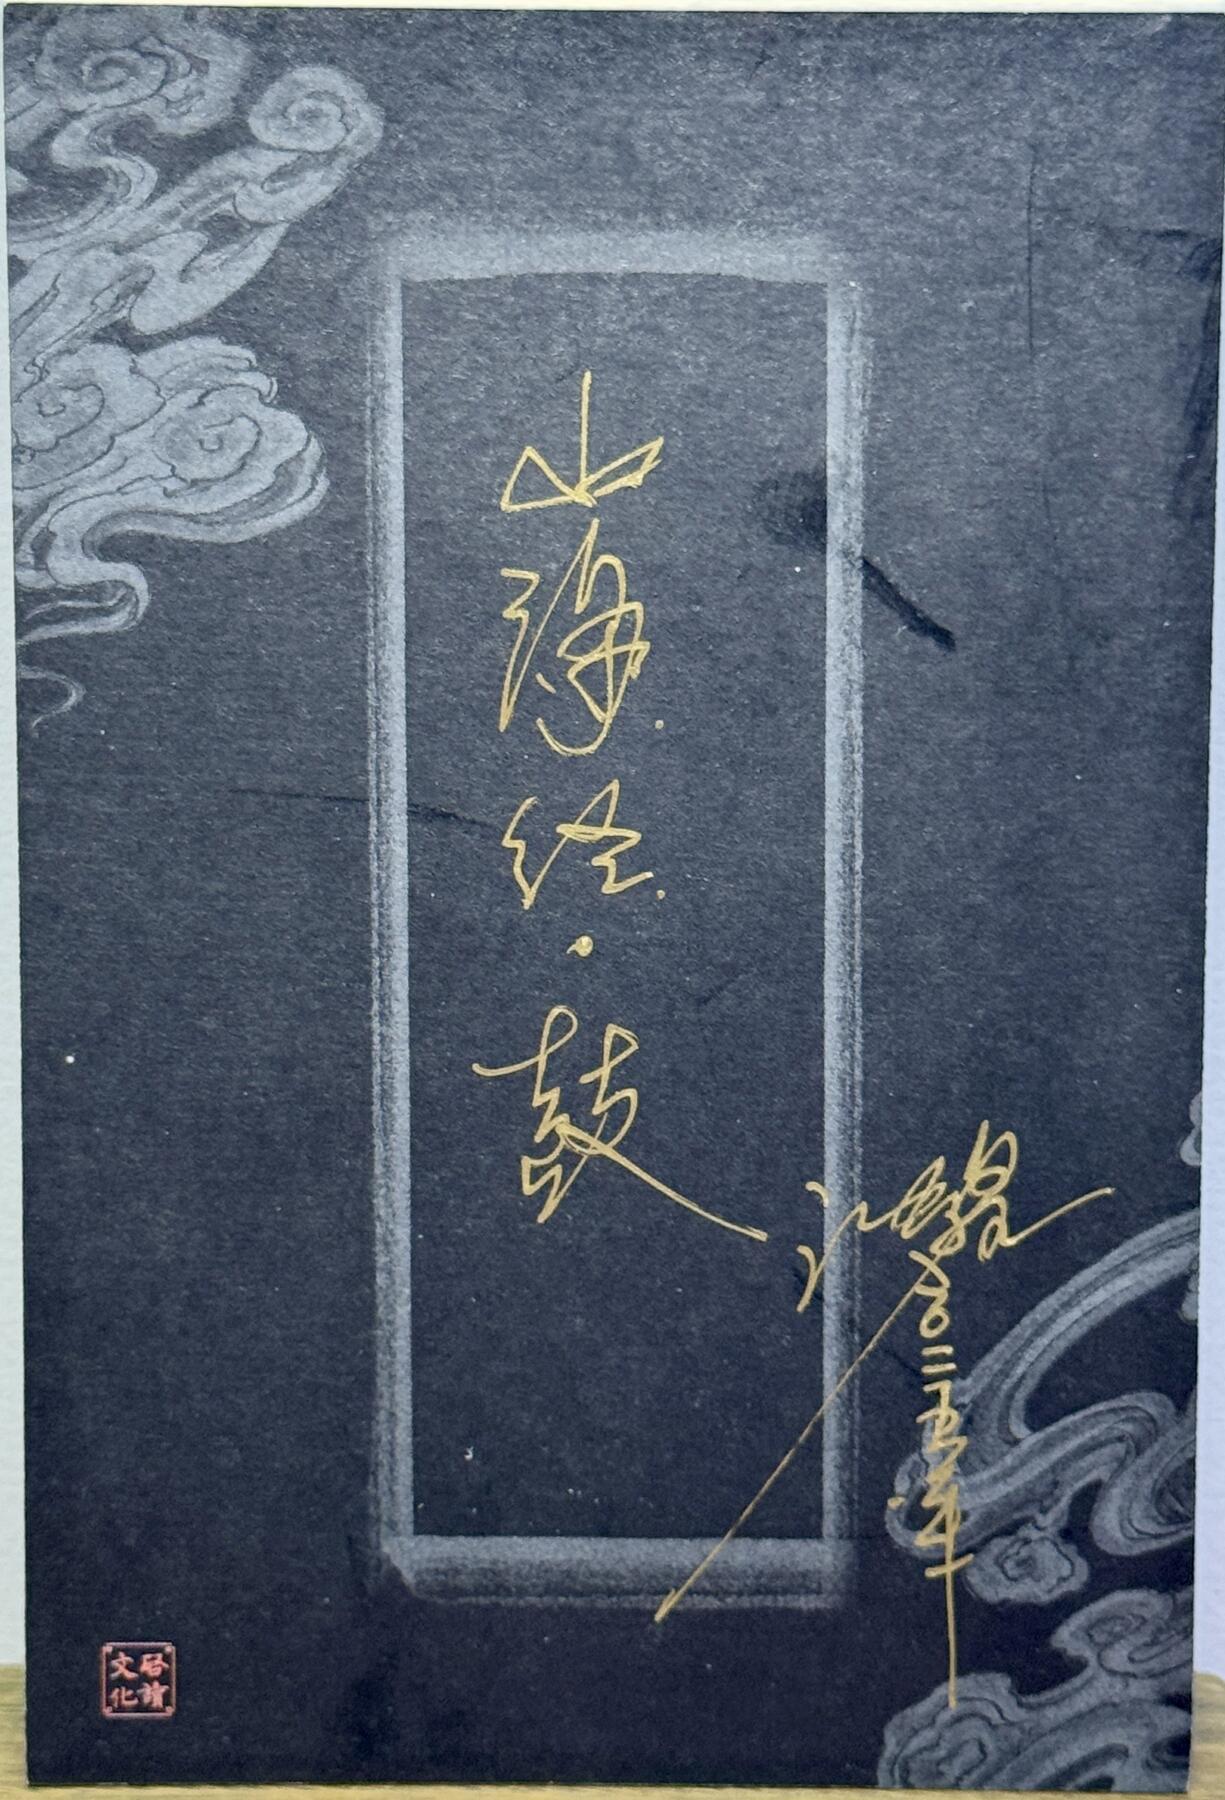 山海经·鼓
二〇二五年
启读
文化